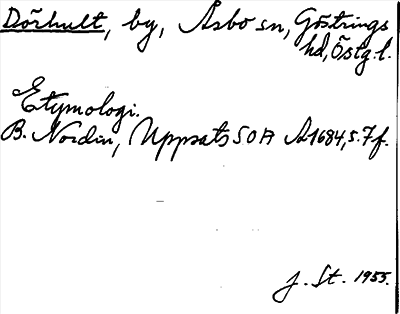 Dörhult, by, Asbo sn, Göstrings
hd, Östg.l.
Etymologi.
B. Nordin, Uppsats SOA A1684, s. 7 f.
J. St. 1955.